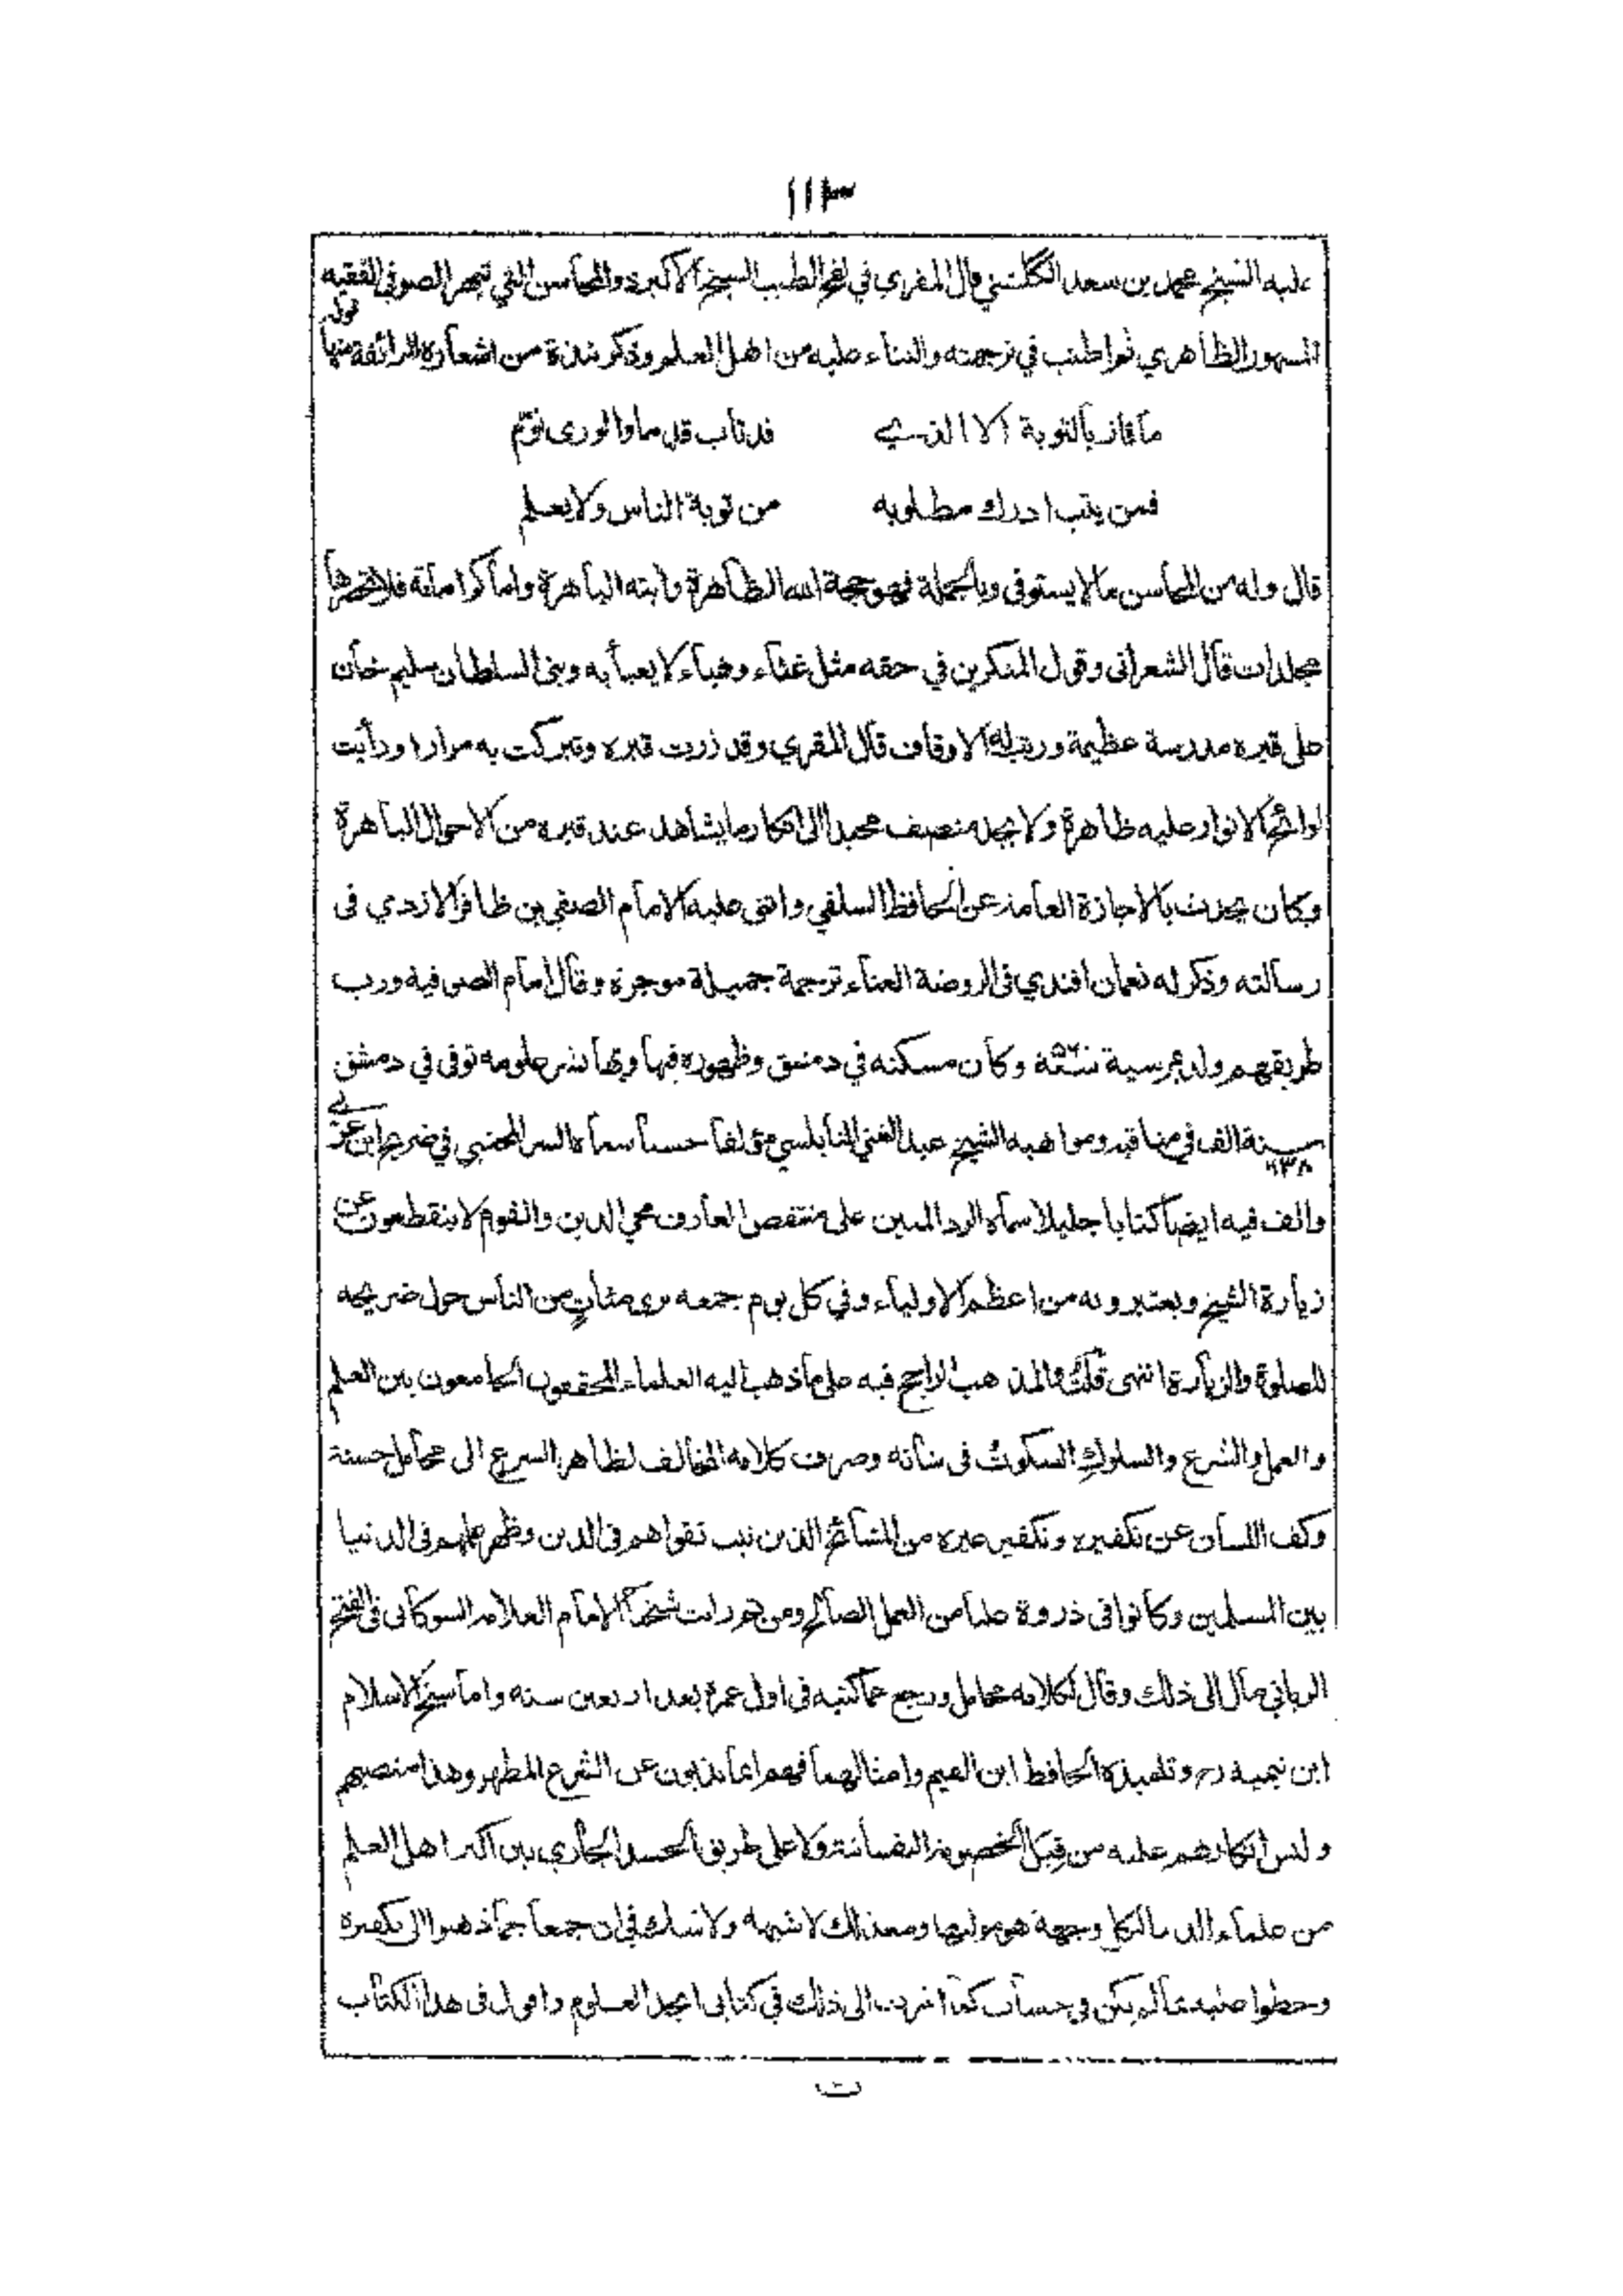 ١١٣
عليه الشيخ محمد بن سعد الكلشني قال المقري في نفح الطيب الشيخ الاكبر ذو المحاسن التي تبهر الصوفي الفقيه
المشهور الظاهري ثم اطنب في ترجمته والثناء عليه من اهل العلم وذكر نبذة من اشعاره الرائقة منها قوله
ما فاز بالتوبة الا الذي قد تاب قدما والورى نوّم
فمن يتب ادرك مطلوبه من توبة الناس ولا يعلم
قال وله من المحاسن ما لا يستوفى وبالجملة فهو حجة الله الظاهرة وآيته الباهرة واما كراماته فلا تحصرها
مجلدات قال الشعراني وقول المنكرين في حقه مثل غثاء وهباء لا يعبأ به وبنى السلطان سليم خان
على قبره مدرسة عظيمة ورتب له الاوقاف قال المقري وقد زرت قبره وتبركت به مرارا ورأيت
لوائح الانوار عليه ظاهرة ولا يجد منصف محيدا الى انكار ما يشاهد عند قبره من الاحوال الباهرة
وكان يحدث بالاجازة العامة عن الحافظ السلفي واثنى عليه الامام الصفي بن ظافر الازدي فى
رسالته وذكر له نعمان افندي فى الروضة الغناء ترجمة جميلة موجزة وقال امام الصوفية ورب
طريقهم ولد بمرسية سنة وكان مسكنه في دمشق وظهوره فيها وبها نشر علومه توفى في دمشق
سنة ٦٣٨ الف في مناقبه ومواهبه الشيخ عبد الغني النابلسي مؤلفا حسنا سماه السر المختبي في ضريح ابن عربي
والف فيه ايضا كتابا جليلا سماه الرد المتين على منتقص العارف محي الدين والقوم لا ينقطعون عن
زيارة الشيخ ويعتبرونه من اعظم الاولياء وفي كل يوم جمعه يرى مئات من الناس حول ضريحه
للصلوة والزيارة انتهى قلتُ والمذهب الراجح فيه على ما ذهب اليه العلماء المحققون الجامعون بين العلم
والعمل والشرع والسلوك السكوتُ فى شانه وصرف كلامه المخالف لظاهر الشرع الى محامل حسنة
وكف اللسان عن تكفيره وتكفير غيره من المشائخ الذين ثبت تقواهم فى الدين وظهر علمهم فى الدنيا
بين المسلمين وكانوا فى ذروة عليا من العمل الصالح ومن ثم رأيت شيخنا الامام العلامة الشوكانى فى الفتح
الربانى مال الى ذلك وقال لكلامه محامل ورجع عما كتبه فى اول عمرة بعد اربعين سنه واما شيخ الاسلام
ابن تيمية رح وتلميذه الحافظ ابن القيم وامثالهما فهم انما يذبون عن الشرع المطهر وهذا منصبهم
وليس انكارهم عليه من قِبَل الخصومة النفسانية ولا على طريق الحسد الجاري بين اكثر اهل العلم
من علماء الدنيا لكل وجهة هو موليها ومع ذلك لا شبهة ولا شك في ان جمعا جما ذهبوا الى تكفيره
وحطوا عليه بما لم يكن في حساب كما اشرت الى ذلك في كتابى ابجد العلوم واقول فى هذا الكتاب